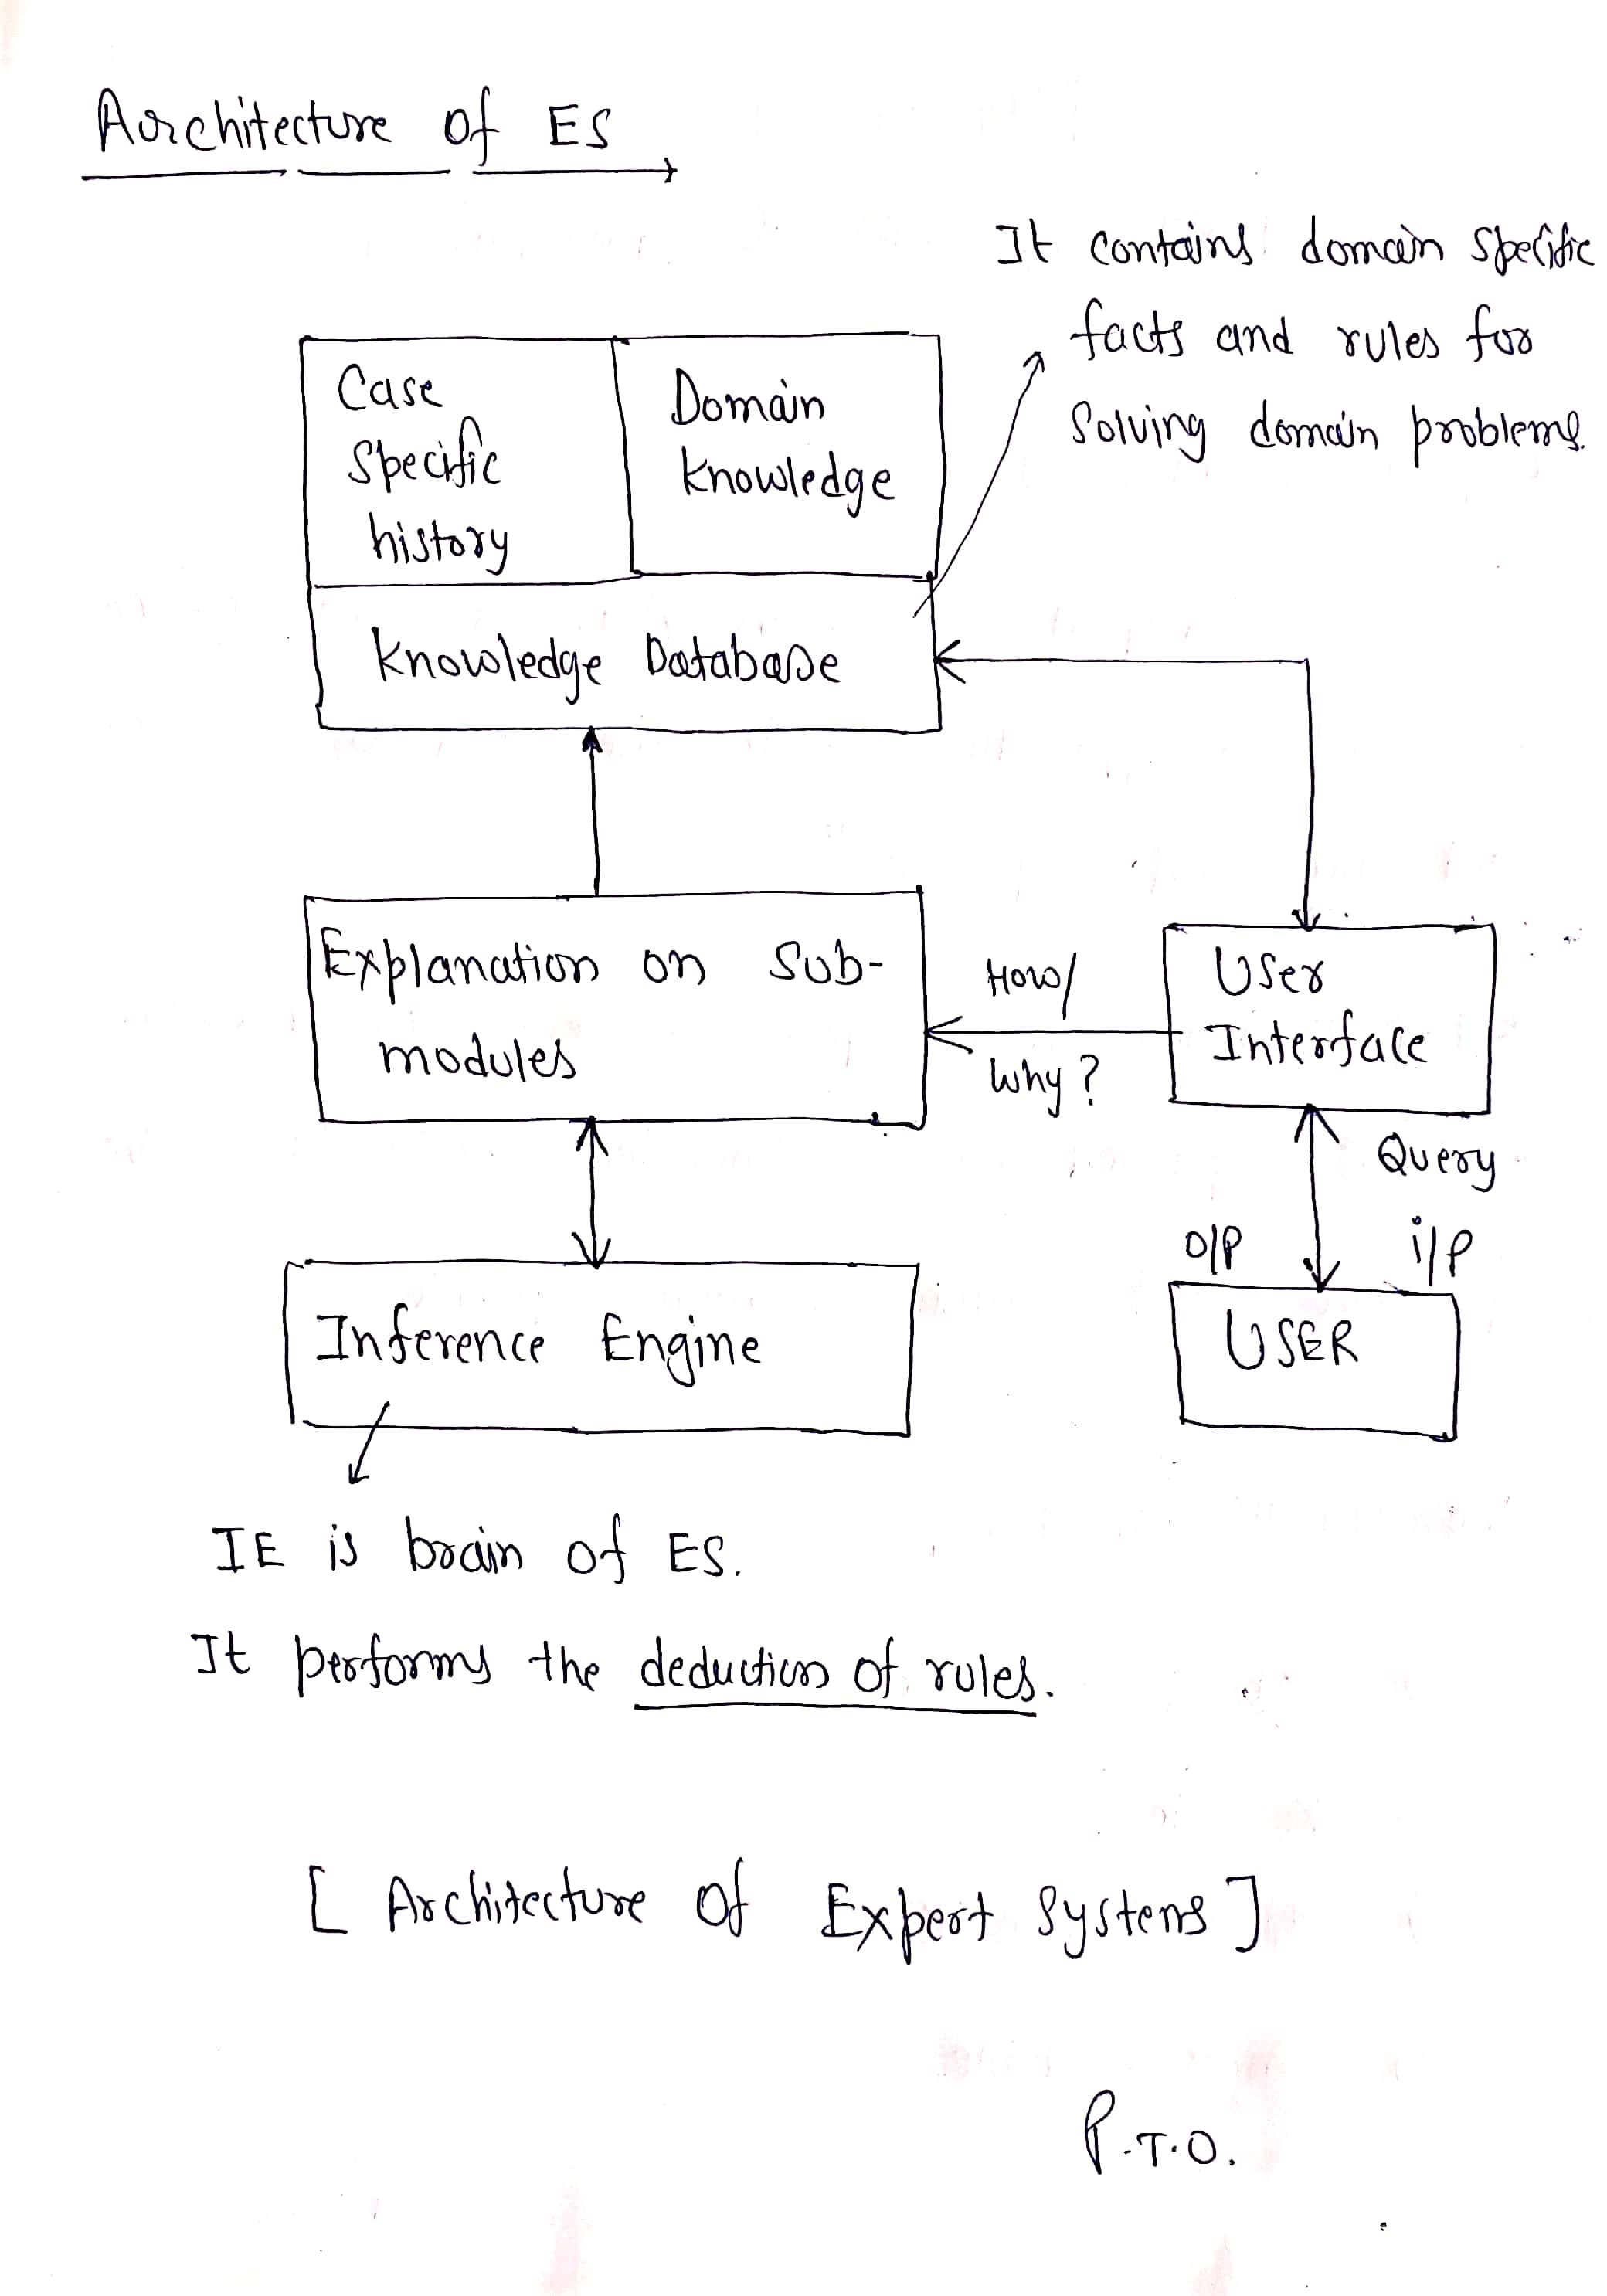 Architecture of ES
It contains domain specific
facts and rules for
solving domain problems.
Case
specific
history
Domain
knowledge
knowledge Database
Explanation on Sub-
modules
How/
Why?
User
Interface
Query
O/P
i/P
Inference Engine
USER
IE is brain of ES.
It performs the deduction of rules.
[ Architecture of Expert Systems ]
P.T.O.